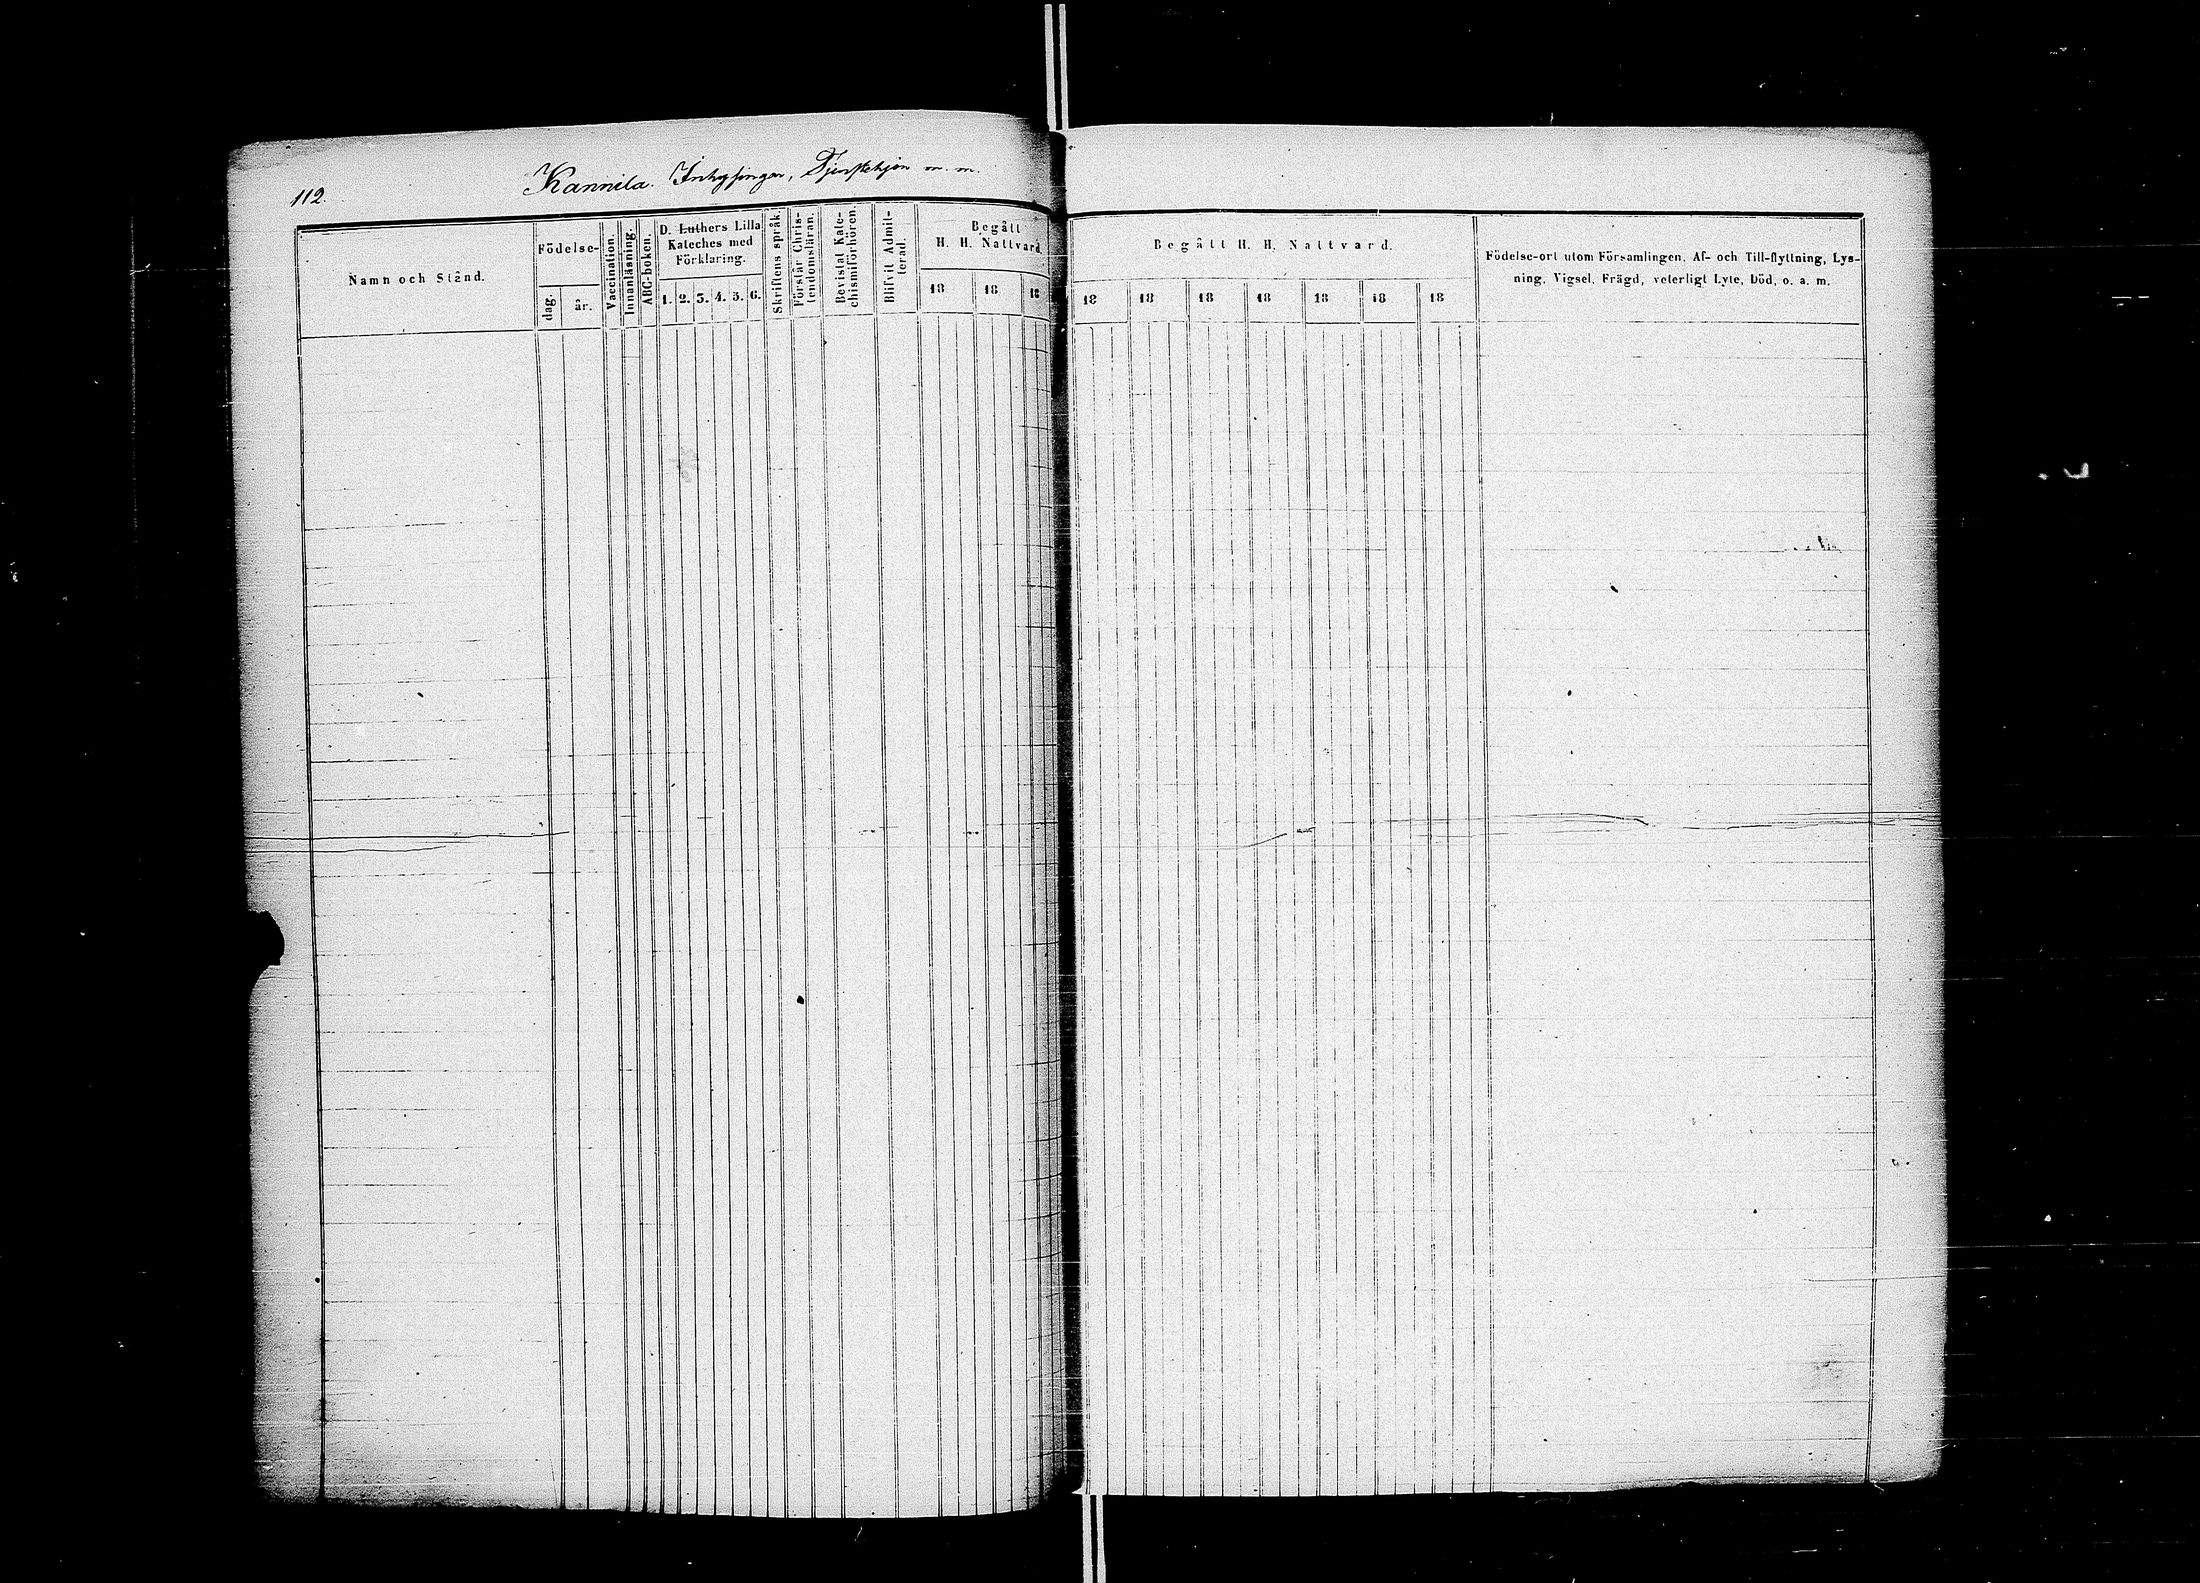 112.
Kannila. Inhysingar, Tjenstehjon m. m.
Namn och Stånd.
Födelse-
dag.
år.
Vaccination.
Innanläsning.
ABC-boken.
D. Luthers Lilla
Kateches med
Förklaring.
1. 2. 3. 4. 5. 6.
Skriftens språk.
Förstår Chris-
tendomsläran.
Bevistat Kate-
chismiförhören.
Blifvit Admit-
terad.
Begått
H. H. Nattvard.
18 18 18
Begått H. H. Nattvard.
18 18 18 18 18 18 18
Födelse-ort utom Församlingen, Af- och Till-flyttning, Lys-
ning, Vigsel, Frägd, veterligt Lyte, Död, o. a. m.